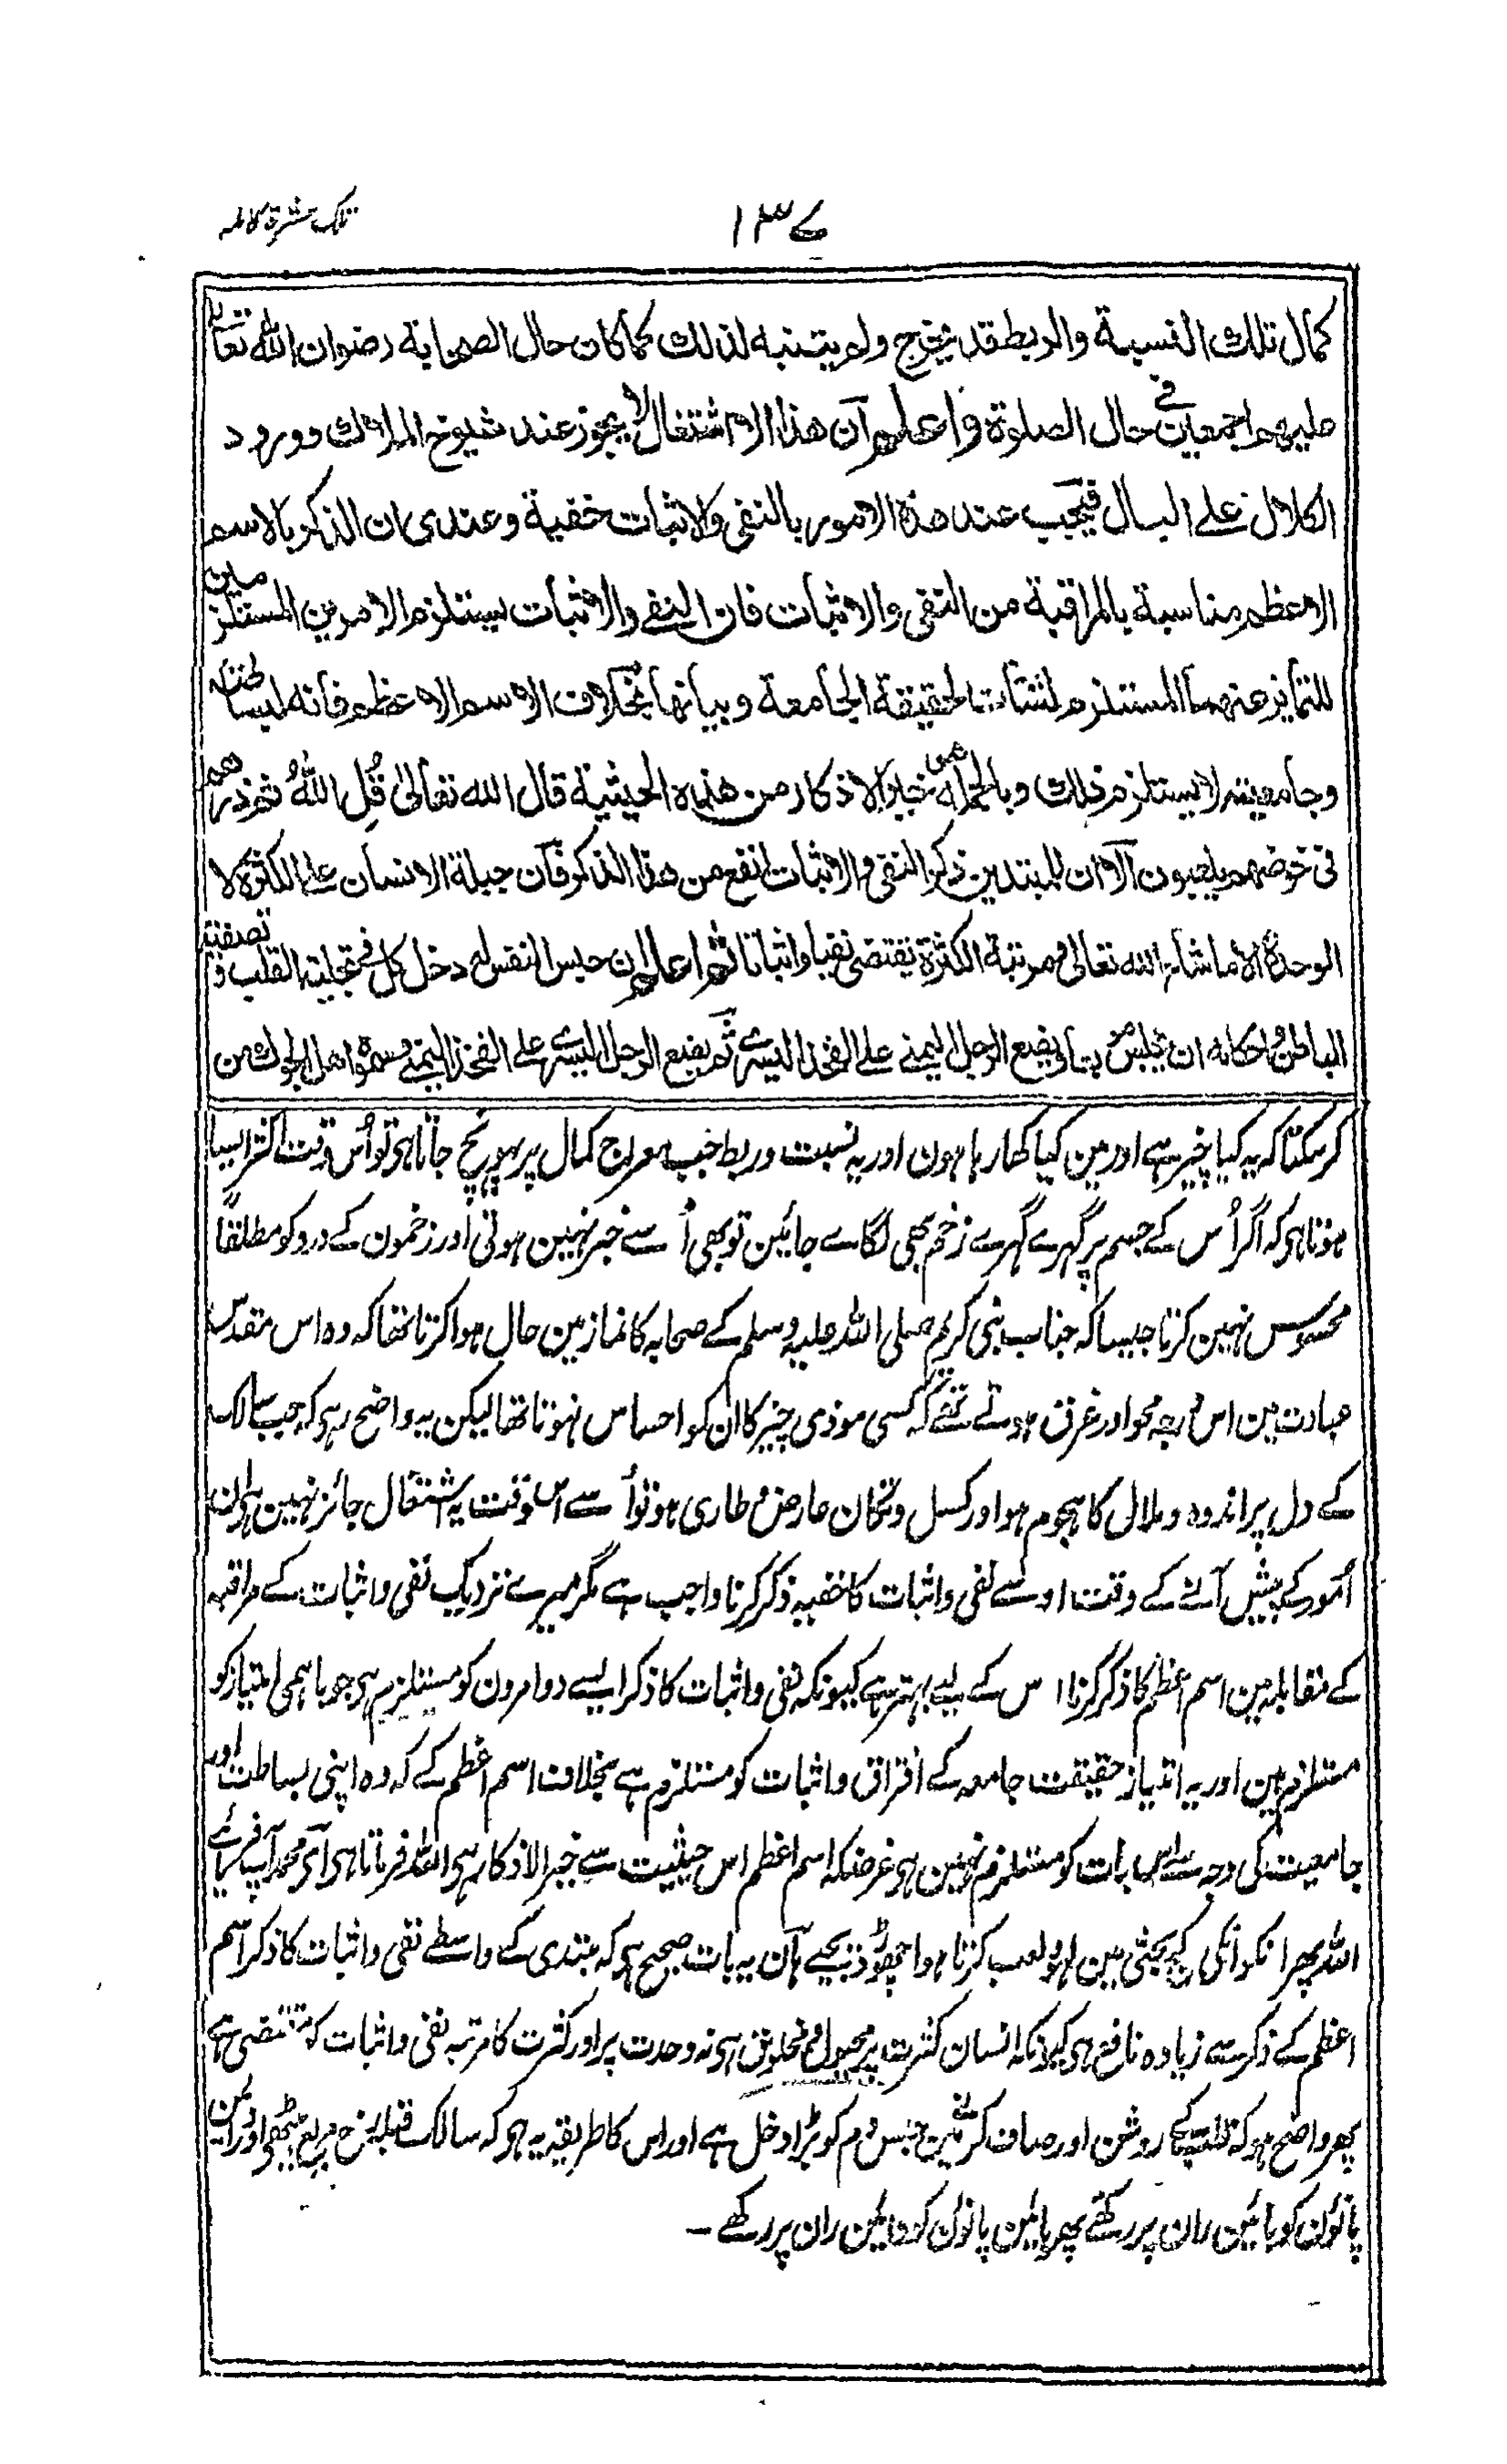 تلک عشرۃ کاملہ
۱۳۷
كمال تلك النسبة والربط قد يخرج ولم يتنبه لذلك كما كان حال الصحابة رضوان الله تعالے
عليهم اجمعين في حال الصلوة واعلم ان هذا الاشتغال لا يجوز عند شيوخ الملال وورود
الكلال على البال فيجب عند هذه الامور بالنفى والاثبات خفية وعندى ان الذكر بالاسم
الاعظم مناسبة بالمراقبة من النفى والاثبات فان النفے والاثبات يستلزم الامرين المستلزمين
للتمايز عنهما المستلزم لشتات الحقيقة الجامعة وبيانها بخلاف الاسم الاعظم فانه لبساطته
وجامعيته لا يستلزم ذلك وبالجملة هى خيار الاذكار من هذه الحيثية قال الله تعالى قُلِ اللّٰهُ ثم ذرهم
فى خوضهم يلعبون الا ان للمبتدين ذكر النفى والاثبات انفع من هذا الذكر فان جبلة الانسان على الكثرة لا
الوحدة الا ما شاء الله تعالى ومرتبة الكثرة تقتضى نفيا واثباتا ثم اعلم ان حبس النفس له دخل كل فى تجلية القلب وتصفية
الباطن واحكامه ان يجلس بتانى يضع الرجل اليمنے على الفخذ اليسرے ثم يضع الرجل اليسرے على الفخذ اليمنے وسموه اهل الجوك من
کرسکتا کہ یہ کیا چیز ہے اور مین کیا کھا رہا ہون اور یہ نسبت و ربط جب معراج کمال پر پہونچ جاتا ہی تو اُس وقت اکثر ایسا
ہوتا ہی کہ اگر اُس کے جسم پر گہرے گہرے زخم بھی لگاے جائین تو بھی اُسے خبر نہین ہوتی اور زخمون کے درد کو مطلقاً
محسوس نہین کرتا جیسا کہ جناب نبی کریم صلی اللہ علیہ وسلم کے صحابہ کا نماز مین حال ہوا کرتا تھا کہ وہ اس مقدس
عبادت مین اس درجہ محو اور غرق ہوتے تھے کہ کسی موذی چیز کا ان کو احساس نہوتا تھا لیکن یہ واضح رہی کہ جب سالک
کے دل پر اندوہ و ملال کا ہجوم ہو اور کسل و تکان عارض و طاری ہو تو اُسے اس وقت یہ اشتغال جائز نہین ہی ان
اُمور کے پیش آنے کے وقت اوسے نفی و اثبات کا خفیہ ذکر کرنا واجب ہے مگر میرے نزدیک نفی و اثبات کے مراقبہ
کے مقابلہ مین اسم اعظم کا ذکر کرنا اس کے لیے بہتر ہے کیونکہ نفی و اثبات کا ذکر ایسے دو امرون کو مستلزم ہی جو باہمی امتیاز کو
مستلزم ہین اور یہ امتیاز حقیقت جامعہ کے افتراق و اثبات کو مستلزم ہے بخلاف اسم اعظم کے کہ وہ اپنی بساطت اور
جامعیت کی وجہ سے اس بات کو مستلزم نہین ہی غرضکہ اسم اعظم اس حیثیت سے خیر الاذکار ہی اللہ فرماتا ہی اے محمد آپ فرمائے
اللہ پھر انکو انکی کج بحثی مین لہو و لعب کرتا ہوا چھوڑ دیجیے ہان یہ بات صحیح ہی کہ مبتدی کے واسطے نفی و اثبات کا ذکر اسم
اعظم کے ذکر سے زیادہ نافع ہی کیونکہ انسان کثرت پر مجبول و مخلوق ہی نہ وحدت پر اور کثرت کا مرتبہ نفی و اثبات کو مقتضی ہے
پھر واضح ہو کہ قلب کے روشن اور صاف کرنے مین حبس دم کو بڑا دخل ہے اور اس کا طریقہ یہ ہی کہ سالک قبلہ رخ مربع بیٹھے اور دائین
پانوٴن کو بائین ران پر رکھے پھر بائین پانوٴن کو دائین ران پر رکھے –